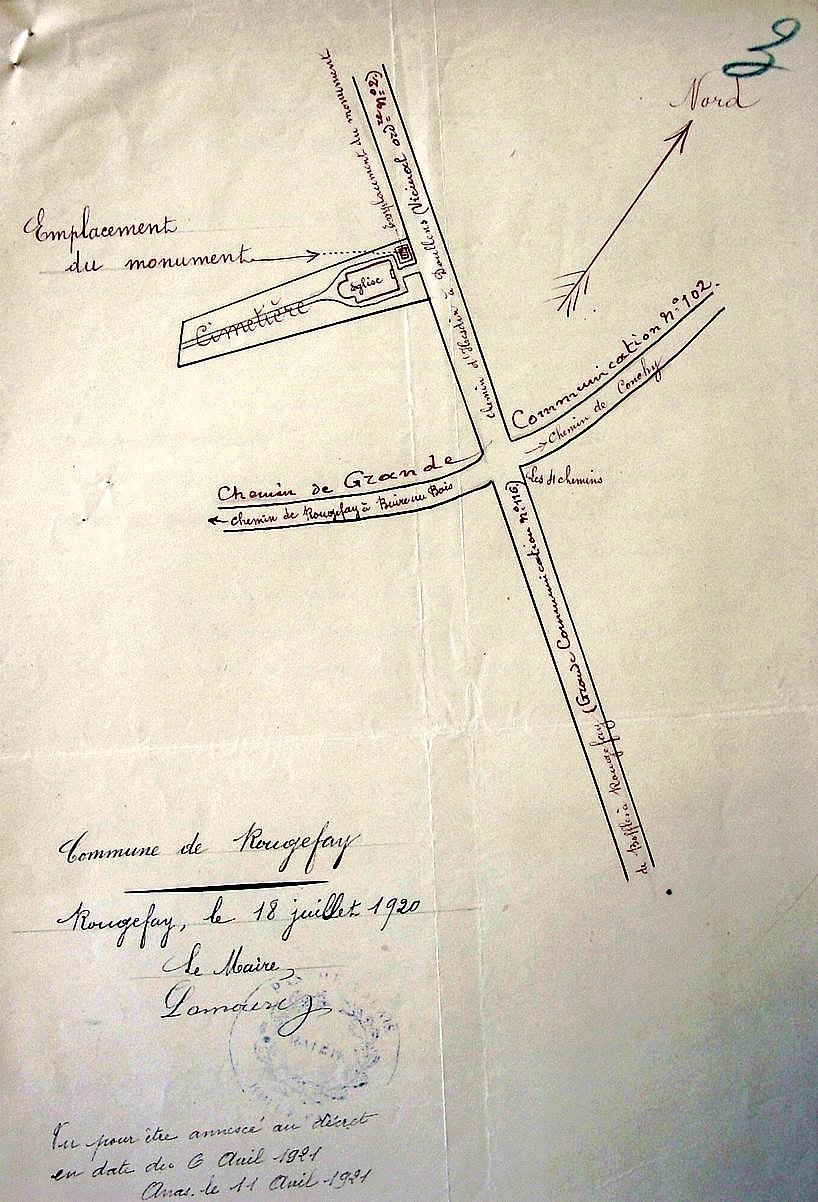 Nord
Emplacement
du monument
Emplacement du monument
Chemin d'Hesdin à Doullens (Vicinal ordre n° 2)
Eglise
Cimetière
Communication n° 102.
Chemin de Conchy
Chemin de Grande
chemin de Rougefay à Buire au Bois
Les 4 chemins
de Boffles à Rougefay (Grande Communication n° 116)
Commune de Rougefay
Rougefay, le 18 juillet 1920
Le Maire,
Vu pour être annexé au décret
en date du 6 Avril 1921
Arras, le 11 Avril 1921